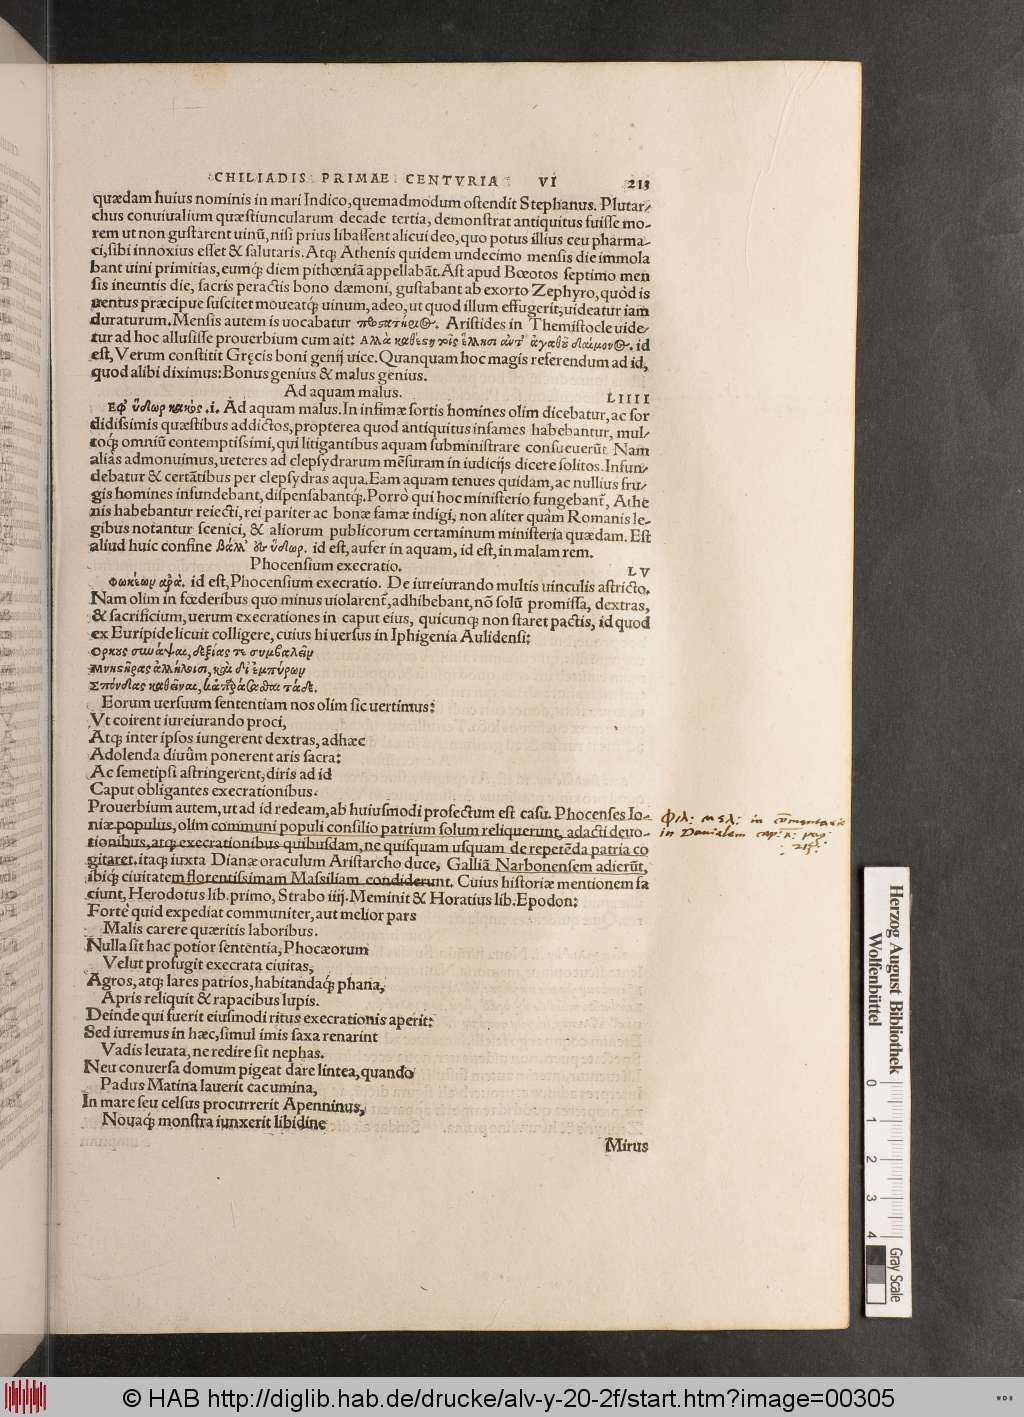 CHILIADIS PRIMAE CENTVRIA VI 213
quædam huius nominis in mari Indico, quemadmodum ostendit Stephanus. Plutar-
chus conuiualium quæstiuncularum decade tertia, demonstrat antiquitus fuisse mo-
rem ut non gustarent uinũ, nisi prius libassent alicui deo, quo potus illius ceu pharma-
ci, sibi innoxius esset & salutaris. Atq; Athenis quidem undecimo mensis die immola
bant uini primitias, eumq; diem pithœniã appellabãt. Ast apud Bœotos septimo men
sis ineuntis die, sacris peractis bono dæmoni, gustabant ab exorto Zephyro, quòd is
uentus præcipue suscitet moueatq; uinum, adeo, ut quod illum effugerit, uideatur iam
duraturum. Mensis autem is uocabatur προστατήριος. Aristides in Themistocle uide-
tur ad hoc allusisse prouerbium cum ait: Αλλὰ καθέστη τοῖς ἕλλησι ἀντ' ἀγαθοῦ δαίμονος. id
est, Verum constitit Gręcis boni genij uice. Quanquam hoc magis referendum ad id,
quod alibi diximus: Bonus genius & malus genius.
Ad aquam malus. LIIII
Εφ' ὕδωρ κακός .i. Ad aquam malus. In infimæ sortis homines olim dicebatur, ac sor
didissimis quæstibus addictos, propterea quod antiquitus infames habebantur, mul-
toq; omniũ contemptissimi, qui litigantibus aquam subministrare consueuerũt. Nam
aliàs admonuimus, ueteres ad clepsydrarum mẽsuram in iudicijs dicere solitos. Infun-
debatur & certãtibus per clepsydras aqua. Eam aquam tenues quidam, ac nullius fru-
gis homines infundebant, dispensabantq;. Porrò qui hoc ministerio fungebant̃, Athe
nis habebantur reiecti, rei pariter ac bonæ famæ indigi, non aliter quàm Romanis le-
gibus notantur scenici, & aliorum publicorum certaminum ministeria quædam. Est
aliud huic confine βάλλ' εἰς ὕδωρ. id est, aufer in aquam, id est, in malam rem.
Phocensium execratio. LV
Φωκέων ἀρά. id est, Phocensium execratio. De iureiurando multis uinculis astricto.
Nam olim in fœderibus quo minus uiolarent̃, adhibebant, nõ solũ promissa, dextras,
& sacrificium, uerum execrationes in caput eius, quicunq; non staret pactis, id quod
ex Euripide licuit colligere, cuius hi uersus in Iphigenia Aulidensi:
Ορκους συνάψαι, δεξίας τε συμβαλεῖν
Μνηστῆρας ἀλλήλοισι, καὶ δι' ἐμπύρων
Σπονδὰς καθεῖναι, κἀπαράσασθαι τάδε.
Eorum uersuum sententiam nos olim sic uertimus:
Vt coirent iureiurando proci,
Atq; inter ipsos iungerent dextras, adhæc
Adolenda diuûm ponerent aris sacra:
Ac semetipsi astringerent, diris ad id
Caput obligantes execrationibus.
Prouerbium autem, ut ad id redeam, ab huiusmodi profectum est casu. Phocenses Io-
niæ populus, olim communi populi consilio patrium solum reliquerunt, adacti deuo-
tionibus, atq; execrationibus quibusdam, ne quisquam usquam de repetẽda patria co
gitaret. itaq; iuxta Dianæ oraculum Aristarcho duce, Galliã Narbonensem adierũt,
ibiq; ciuitatem florentissimam Massiliam condiderunt. Cuius historiæ mentionem fa
ciunt, Herodotus lib. primo, Strabo iiij. Meminit & Horatius lib. Epodon:
Forte quid expediat communiter, aut melior pars
Malis carere quæritis laboribus.
Nulla sit hac potior sententia, Phocæorum
Velut profugit execrata ciuitas,
Agros, atq; lares patrios, habitandaq; phana,
Apris reliquit & rapacibus lupis.
Deinde qui fuerit eiusmodi ritus execrationis aperit:
Sed iuremus in hæc, simul imis saxa renarint
Vadis leuata, ne redire sit nephas.
Neu conuersa domum pigeat dare lintea, quando
Padus Matina lauerit cacumina,
In mare seu celsus procurrerit Apenninus,
Nouaq; monstra iunxerit libidine
Mirus
Φιλ: μελ: in cõmentario
in Danielem cap: pag:
215
Herzog August Bibliothek
Wolfenbüttel
0 1 2 3 4
Gray Scale
© HAB http://diglib.hab.de/drucke/alv-y-20-2f/start.htm?image=00305